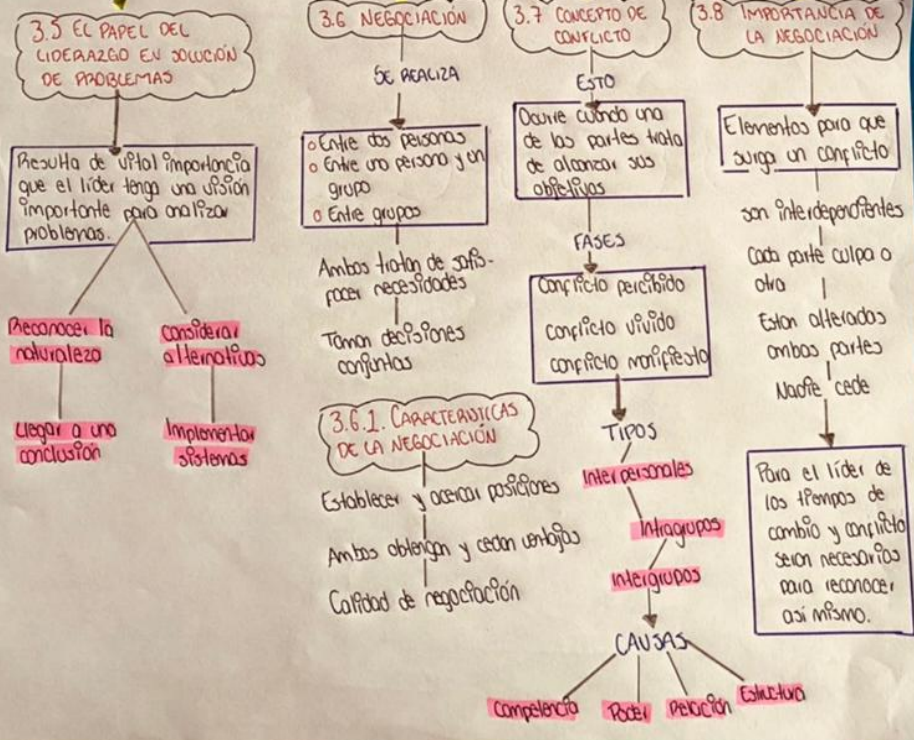 3.5 EL PAPEL DEL
LIDERAZGO EN SOLUCIÓN
DE PROBLEMAS
Resulta de vital importancia
que el líder tenga una visión
importante para analizar
problemas.
Reconocer la
naturaleza
Llegar a una
conclusión
considerar
alternativas
Implementar
sistemas
3.6 NEGOCIACIÓN
SE REALIZA
Entre dos personas
Entre una persona y un
grupo
Entre grupos
Ambos tratan de satis-
facer necesidades
Toman decisiones
conjuntas
3.6.1. CARACTERISTICAS
DE LA NEGOCIACIÓN
Establecer y acercar posiciones
Ambos obtengan y cedan ventajas
Calidad de negociación
3.7 CONCEPTO DE
CONFLICTO
ESTO
Ocurre cuando una
de las partes trata
de alcanzar sus
objetivos
FASES
Conflicto percibido
conflicto vivido
conflicto manifiesto
TIPOS
Interpersonales
Intragrupos
Intergrupos
CAUSAS
Competencia
Poder
Relación
Estructura
3.8 IMPORTANCIA DE
LA NEGOCIACIÓN
Elementos para que
surga un conflicto
son interdependientes
Cada parte culpa a
otra
Estan alteradas
ambas partes
Nadie cede
Para el líder de
los tiempos de
cambio y conflicto
seron necesarios
para reconocer
asi mismo.